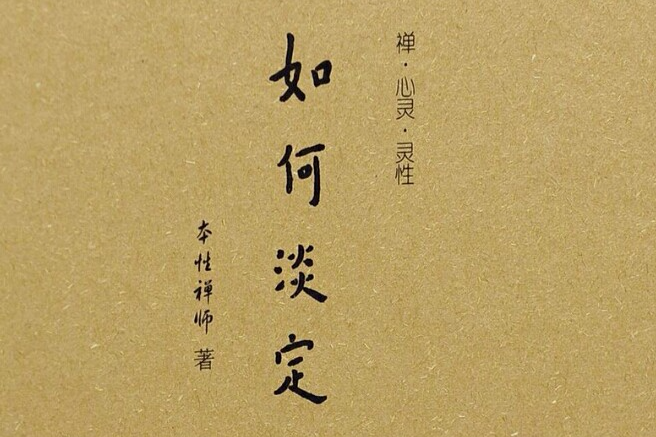 禅·心灵·灵性
如何淡定
本性禅师 著